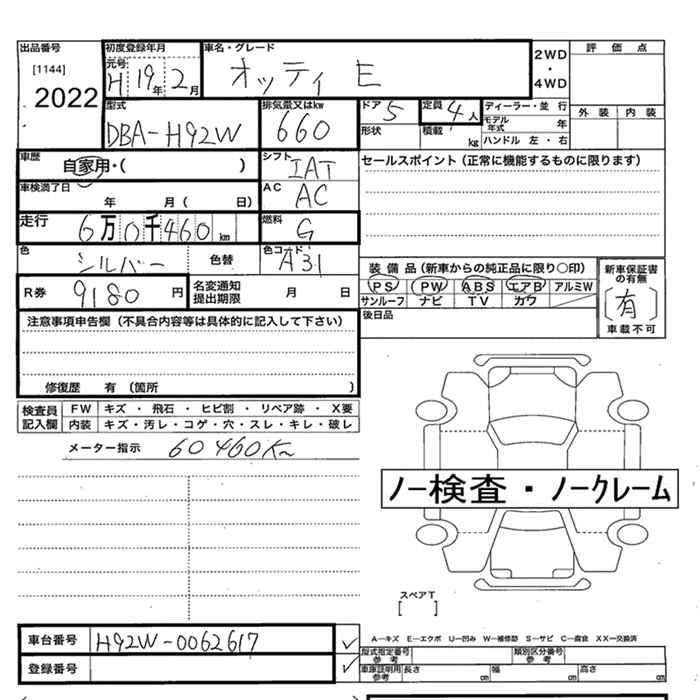 出品番号 初度登録年月 車名・グレード 2WD・4WD 評価点
[1144] 元号 H 19年 2月 オッティ E
2022 外装 内装
型式 DBA-H92W 排気量又はkw 660 ドア 5 定員 4人 ディーラー・並行
形状 積載 kg モデル年式 年
ハンドル 左・右
車歴 自家用・( ) シフト IAT セールスポイント(正常に機能するものに限ります)
車検満了日 年 月( 日) AC AC
走行 6万0千460km 燃料 G
色 シルバー 色替 色コード A31
装備品(新車からの純正品に限り〇印) 新車保証書の有無
R券 9180円 名変通知提出期限 月 日 PS PW ABS エアB アルミW [有]
サンルーフ ナビ TV カワ 車載不可
注意事項申告欄(不具合内容等は具体的に記入して下さい) 後日品
修復歴 有(箇所 )
検査員記入欄 FW キズ・飛石・ヒビ割・リペア跡・X要
内装 キズ・汚レ・コゲ・穴・スレ・キレ・破レ
メーター指示 60460K
ノー検査・ノークレーム
スペアT
[ ]
車台番号 H92W-0062617 ✓ A―キズ E―エクボ U―凹み W―補修跡 S―サビ C―腐食 XX―交換済
型式指定番号 参考 類別区分番号 参考
登録番号 ✓ 車庫証明用 参考 長さ cm 幅 cm 高さ cm